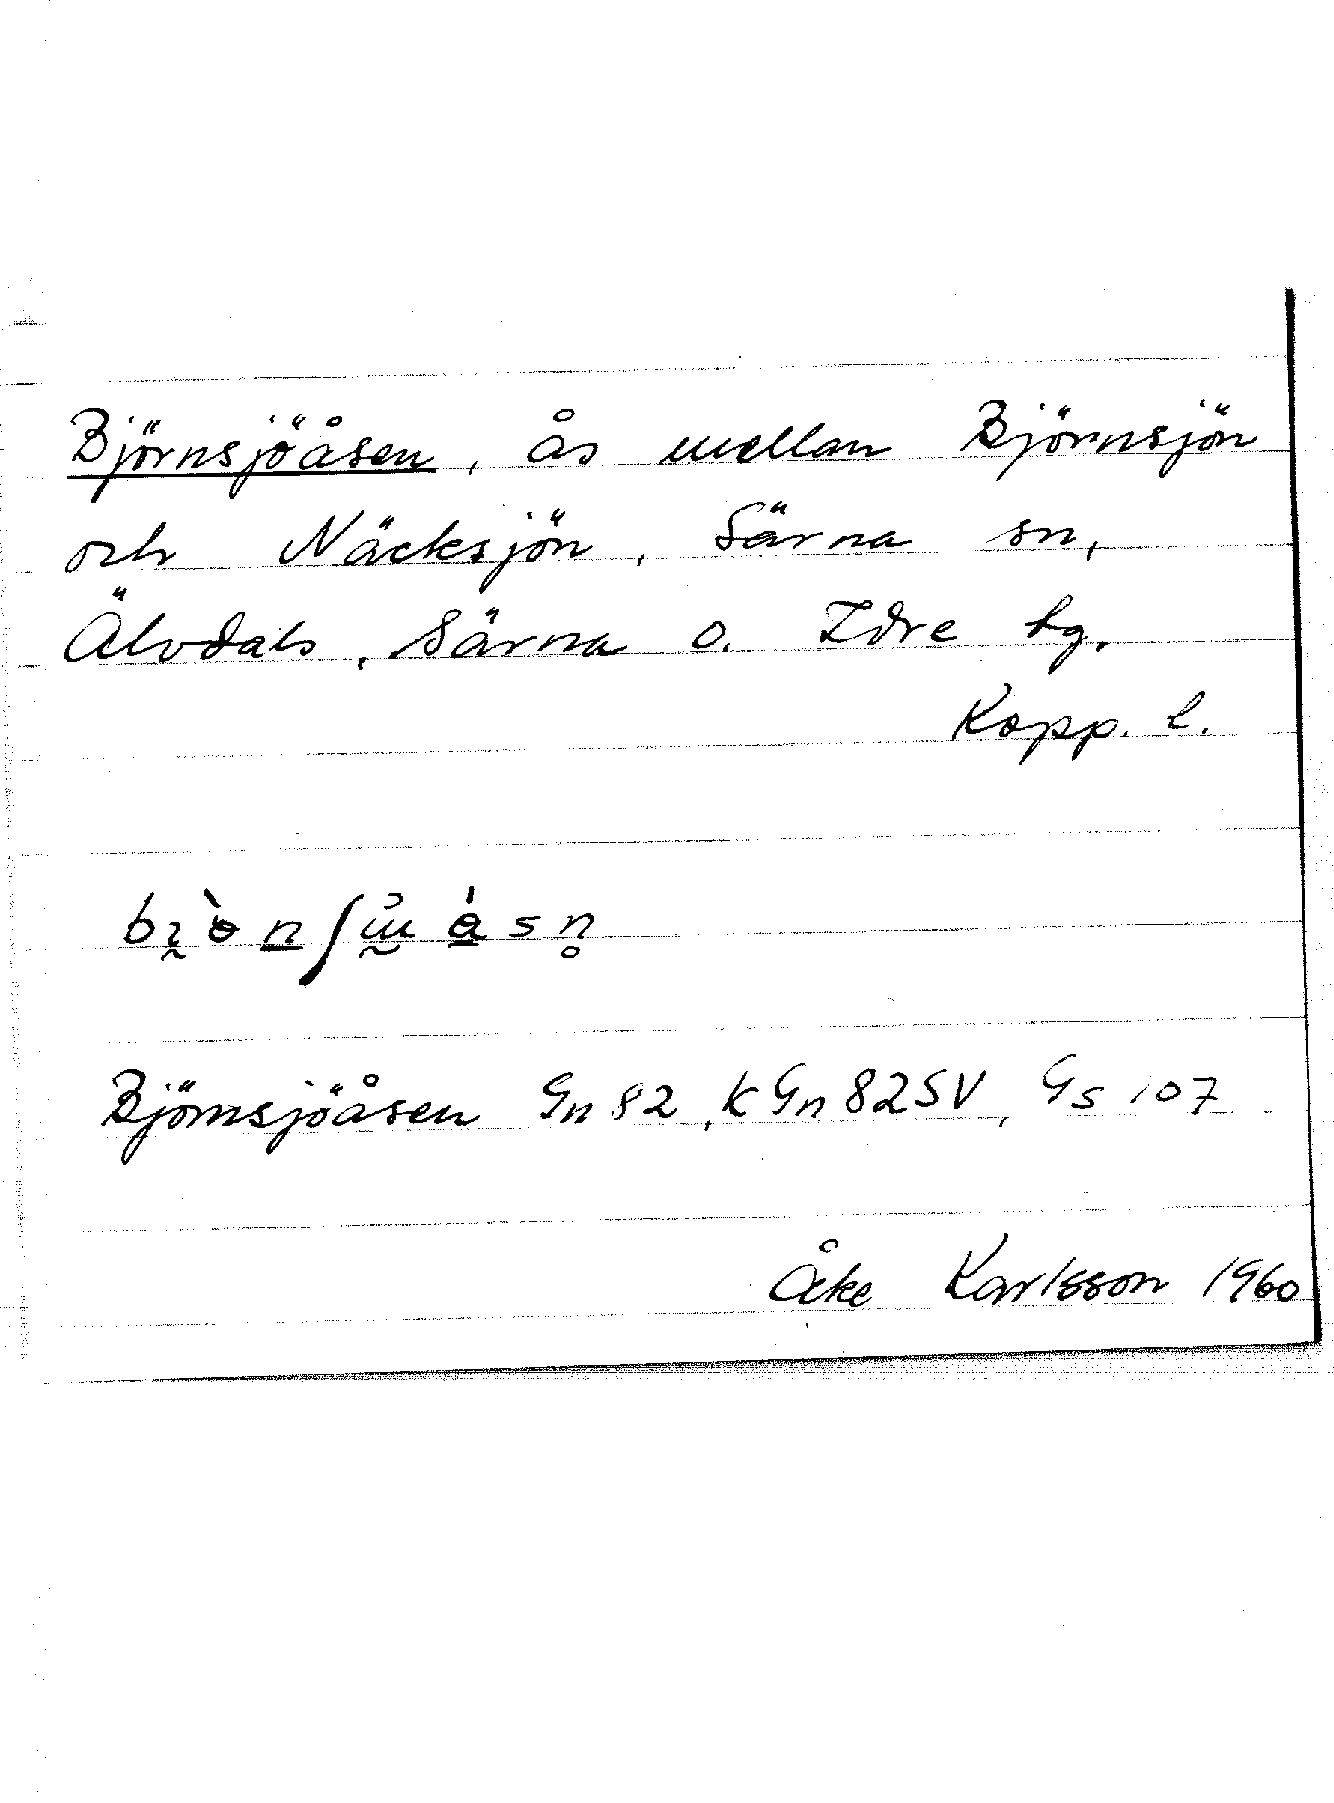 Björnsjöåsen, ås mellan Björnsjön
och Näcksjön, Särna sn,
Älvdals, Särna o. Idre tg,
Kopp. l.
Björnsjöåsen Gn 82, K Gn 82 SV, Gs 107
Åke Karlsson 1960